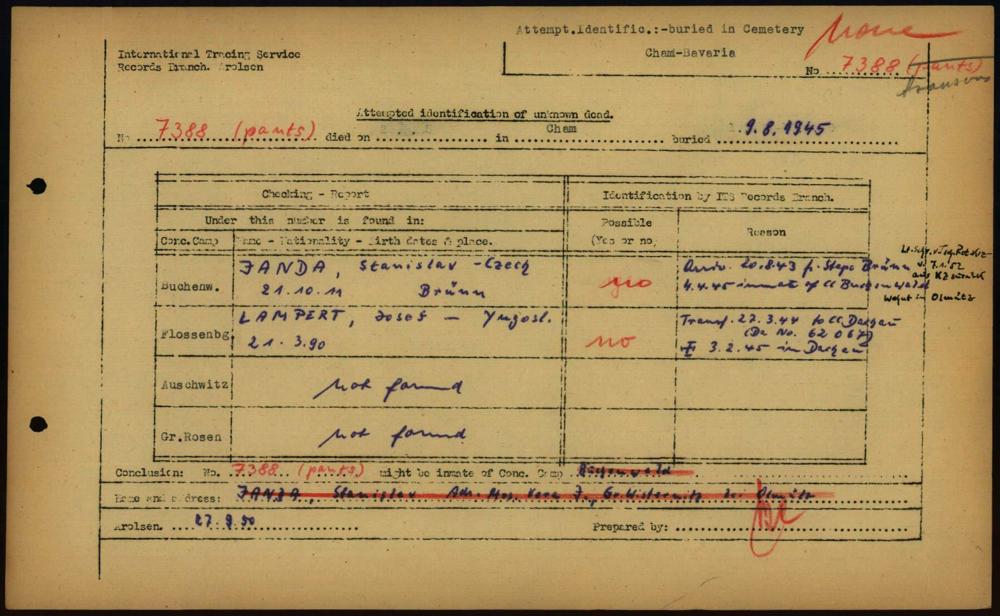 Attempt.Identific.:-buried in Cemetery
Cham-Bavaria
None
No 7388 (pants)
International Tracing Service
Records Branch. Arolsen
Attempted identification of unknown dead.
No 7388 (pants) died on in Cham buried 9.8.1945
Checking - Report
Identification by ITS Records Branch.
Under this number is found in:
Possible
(Yes or no,
Reason
Conc.Camp
Name - Nationality - Birth dates & place.
Buchenw.
JANDA, Stanislav - Czech
21.10.11 Brünn
no
20.8.43 Brünn
4.4.45 inmate of CC Buchenwald
7.1.52
wohnt in Olmütz
Flossenbg
LAMPERT, Josef - Yugosl.
21.3.90
no
Transf. 22.3.44 to CC Dachau
(Da No. 62 067)
3.2.45 in Dachau
Auschwitz
not found
Gr.Rosen
not found
Conclusion: No. 7388 (pants) might be inmate of Conc. Camp Buchenwald
Name and address: JANDA, Stanislav Adr. Mrs. Vera J., Gr. Wisternitz Olmütz
Arolsen. 27.9.50
Prepared by: